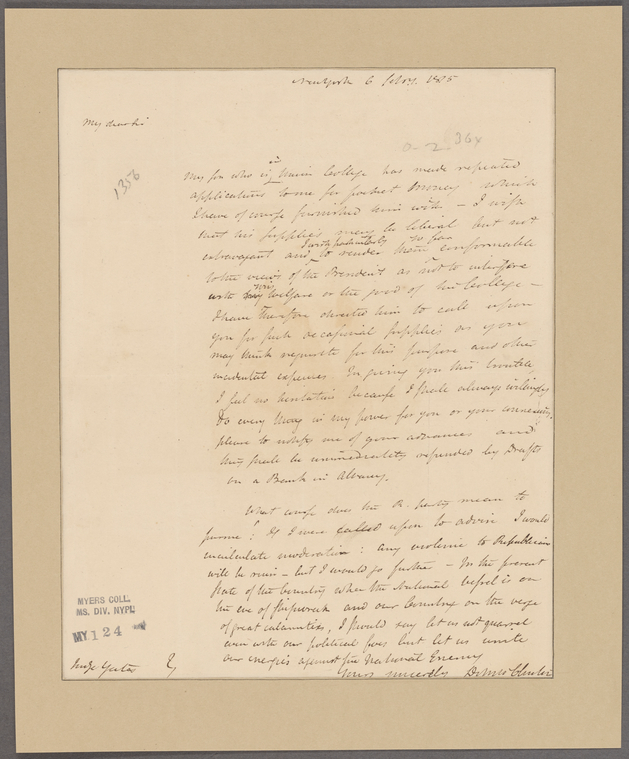 New York 6 Feby. 1815
My dear Sir
0-2 364
1356
in
My son who is Union College has made repeated
applications to me for pocket money which
I have of course furnished him with — I wish
that his supplies may be liberal but not
I wish particularly so far
extravagant and to render them conformable
to the views of the President as not to interfere
his
with Welfare or the good of the College —
I have therefore directed him to call upon
you for such occasional supplies as you
may think requisite for this purpose and other
incidental expences In giving you this trouble,
I feel no hesitation because I shall always willingly
do every thing in my power for you or your
please to notify me of your advances and
they shall be immediately refunded by Drafts
on a Bank in Albany.
What course does the R. party mean to
pursue? If I were called upon to advise I would
inculcate moderation: any violence to Republicans
will be ruin — but I would go further — In the present
state of the Country when the National vessel is on
the eve of shipwreck and our Country on the verge
of great calamities, I should say let us not quarrel
even with our political foes but let us unite
our energies against the National Enemy
Yours sincerely DeWitt Clinton
Judge Yates
MYERS COLL.
MS. DIV. NYPL
MY 124